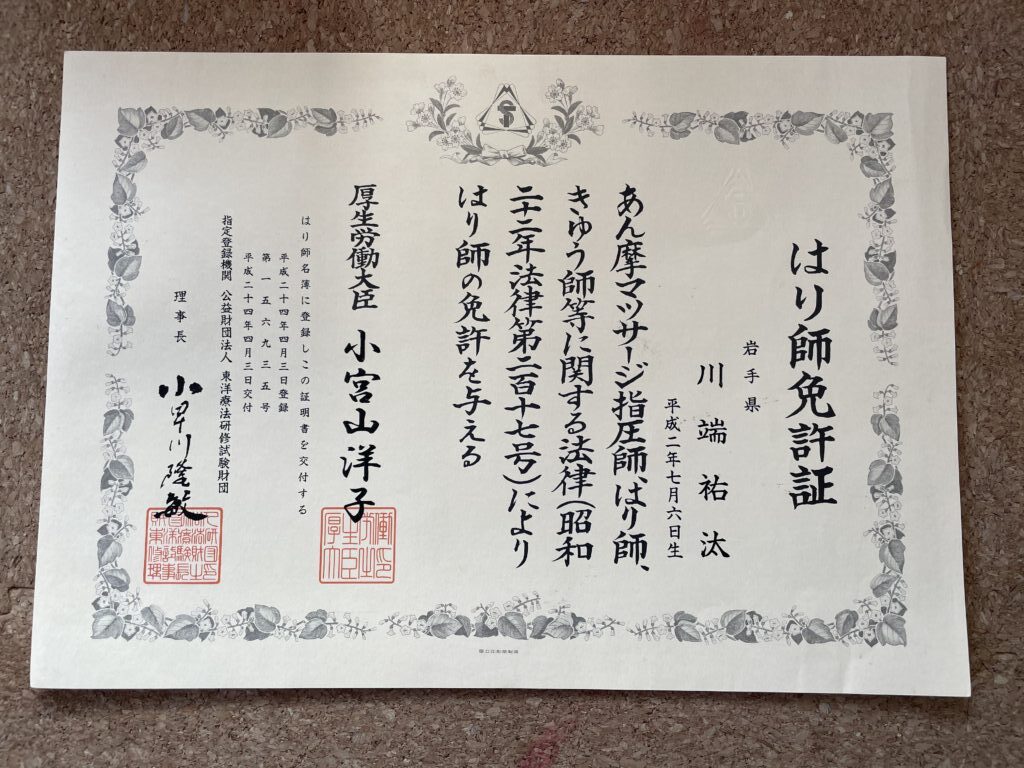 はり師免許証
岩手県
川端祐汰
平成二年七月六日生
あん摩マツサージ指圧師、はり師、
きゆう師等に関する法律(昭和
二十二年法律第二百十七号)により
はり師の免許を与える
厚生労働大臣 小宮山洋子
はり師名簿に登録しこの証明書を交付する
平成二十四年四月三日登録
第一五六九三五号
平成二十四年四月三日交付
指定登録機関 公益財団法人 東洋療法研修試験財団
理事長
小早川隆敏